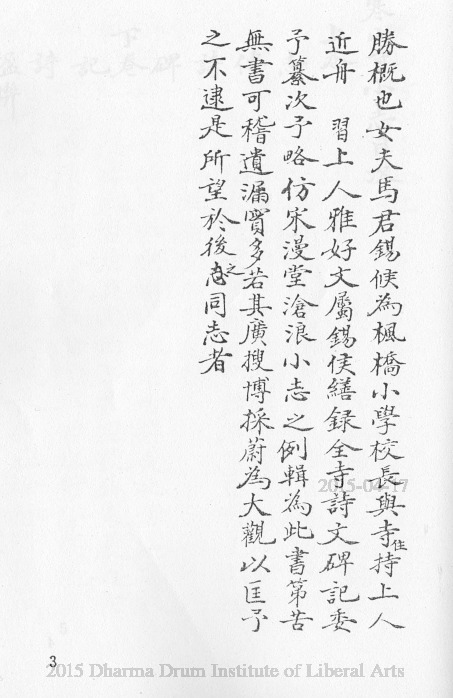 勝概也女夫馬君錫侯為楓橋小學校長與寺住持上人
近舟　習上人雅好文屬錫侯繕録全寺詩文碑記委
予纂次予略仿宋漫堂滄浪小志之例輯為此書第苦
無書可稽遺漏實多若其廣搜博採蔚為大觀以匡予
之不逮是所望於後之同志者
2015-04-17
3
2015 Dharma Drum Institute of Liberal Arts